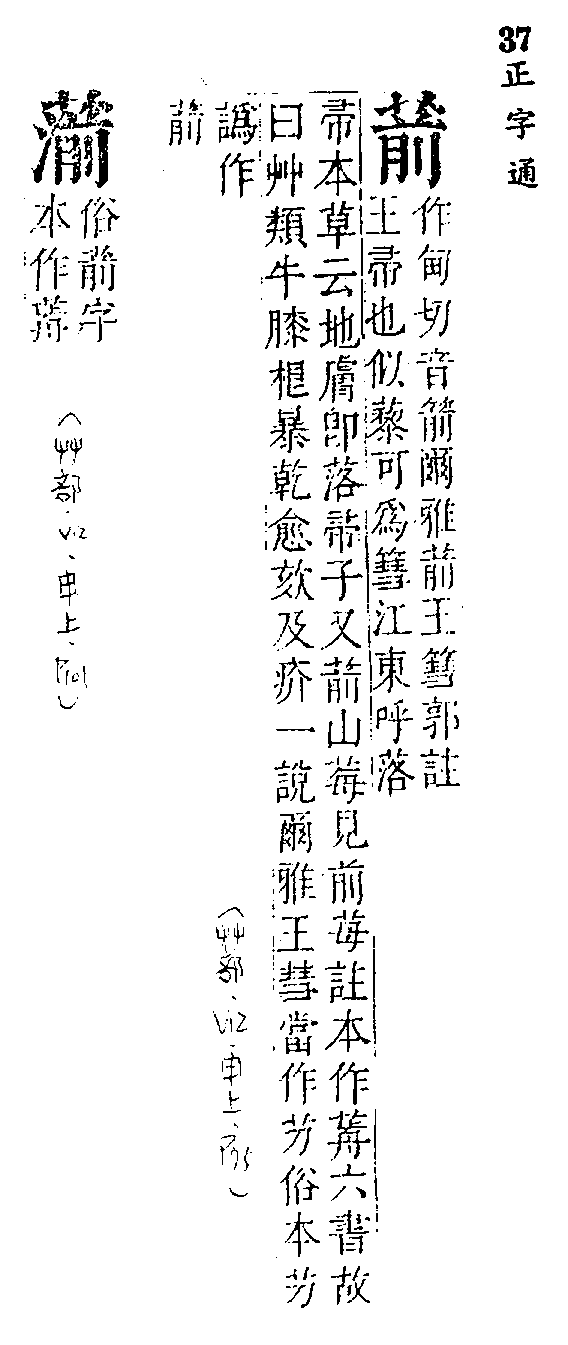 37 正字通
葥
作甸切音箭爾雅葥王篲郭註
王帚也似藜可為篲江東呼落
帚本草云地膚即落帚子又葥山莓見前苺註本作𦽏六書故
曰艸類牛膝根暴乾愈欬及疥一說爾雅王彗當作艻俗本艻
譌作
葥
俗葥字
(艸部.V12.申上.P95)
(艸部.V12.申上.P101)